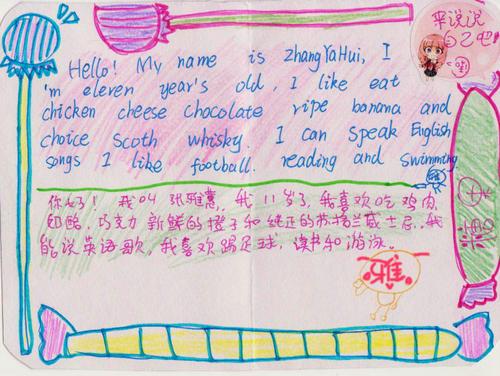 来说说
自己吧!
Hello! My name is zhangYaHui, I
'm eleven year's old, I like eat
chicken cheese chocolate ripe banana and
choice scoth whisky. I can speak English
songs I like football. reading and swimming
你好! 我叫 张雅慧, 我 11 岁了, 我喜欢吃 鸡肉
奶酪, 巧克力 新鲜的橙子和 纯正的苏格兰威士忌. 我
能说英语歌, 我喜欢踢足球, 读书和游泳.
雅
糖果